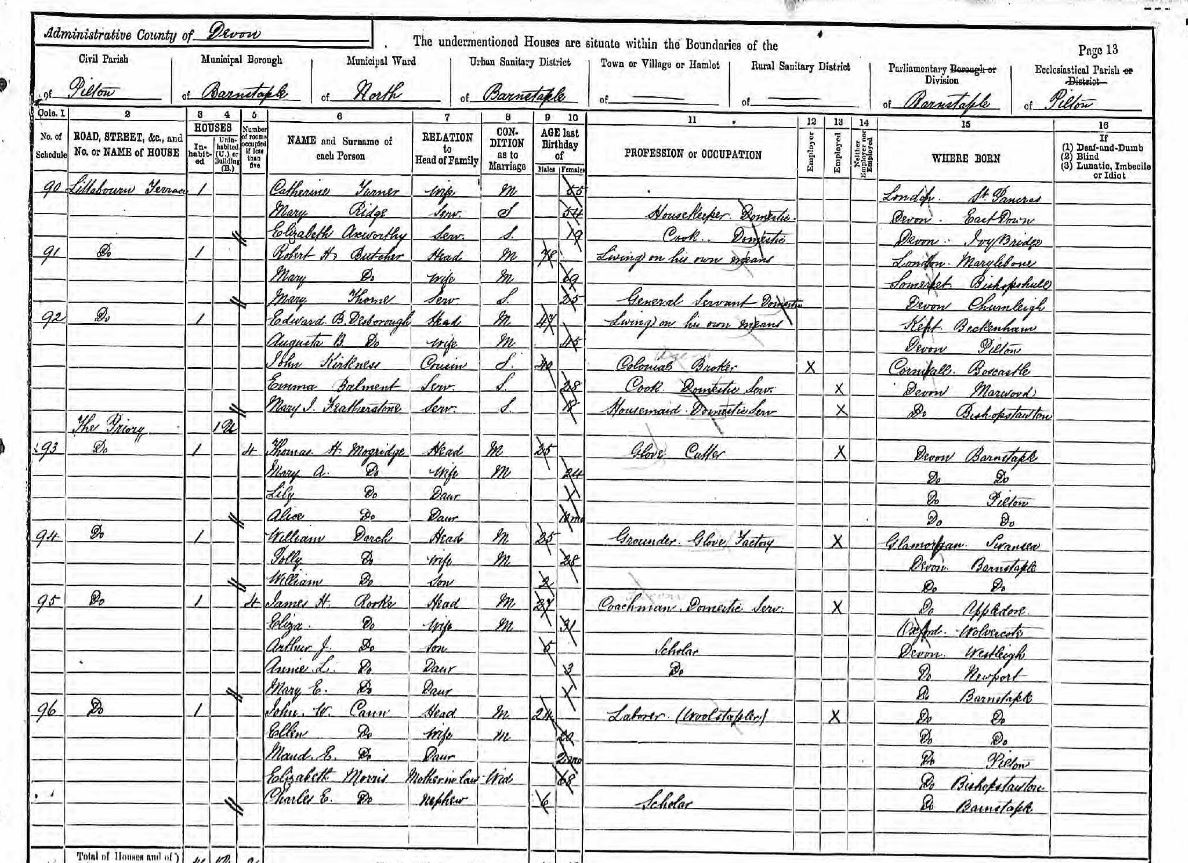 Administrative County of Devon
The undermentioned Houses are situate within the Boundaries of the
Page 13
Civil Parish Municipal Borough Municipal Ward Urban Sanitary District Town or Village or Hamlet Rural Sanitary District Parliamentary Borough or Division Ecclesiastical Parish or District
of Pilton of Barnstaple of North of Barnstaple of of of Barnstaple of Pilton
Cols. 1 2 3 4 5 6 7 8 9 10 11 12 13 14 15 16
No. of Schedule ROAD, STREET, &c., and No. or NAME of HOUSE HOUSES In-habit-ed Unin-habited (U.) or Building (B.) Number of rooms occupied if less than five NAME and Surname of each Person RELATION to Head of Family CON-DITION as to Marriage AGE last Birthday of Males Females PROFESSION or OCCUPATION Employer Employed Neither Employer nor Employed WHERE BORN If (1) Deaf-and-Dumb (2) Blind (3) Lunatic, Imbecile or Idiot
90 Terrace 1 Catherine Turner Wife M 55 London St. Pancras
Mary Ridge Serv. S 54 Housekeeper Domestic Devon East Down
Elizabeth Axworthy Serv. S. 19 Cook Domestic Devon Ivy Bridge
91 Do 1 Robert H. Butcher Head M 78 Living on his own means London Marylebone
Mary Do Wife M 69 Somerset
Mary Thorne Serv S. 25 General Servant Domestic Devon Chumleigh
92 Do 1 Edward B. Desborough Head M 47 Living on his own means Kent Beckenham
Augusta B. Do Wife M 45 Devon Pilton
John Kirkness Cousin S. 40 Colonial Broker X Cornwall Boscastle
Emma Balment Serv. S. 28 Cook Domestic Serv. X Devon Marwood
Mary J. Featherstone Serv. S. 18 Housemaid Domestic Serv X Do Bishopstawton
The Priory 1 U
93 Do 1 4 Thomas H. Mogridge Head M 25 Glove Cutter X Devon Barnstaple
Mary A. Do Wife M 24 Do Do
Lily Do Daur Do Pilton
Alice Do Daur Do Do
94 Do 1 William Dorch Head M 25 Grounder Glove Factory X Glamorgan Swansea
Polly Do Wife M 28 Devon Barnstaple
William Do Son 2 Do Do
95 Do 1 4 James H. Rooke Head M 27 Coachman Domestic Serv. X Do Appledore
Eliza Do Wife M 31 Oxford Wolvercote
Arthur J. Do Son 5 Scholar Devon Westleigh
Annie L. Do Daur 3 Do Do Newport
Mary E. Do Daur Do Barnstaple
96 Do 1 John W. Cann Head M 24 Laborer (Woolstapler) X Do Do
Ellen Do Wife M 20 Do Do
Maud E. Do Daur 2 mo Do Pilton
Elizabeth Morris Mother in law Wid 68 Do Bishopstawton
Charles E. Do Nephew 6 Scholar Do Barnstaple
Total of Houses and of